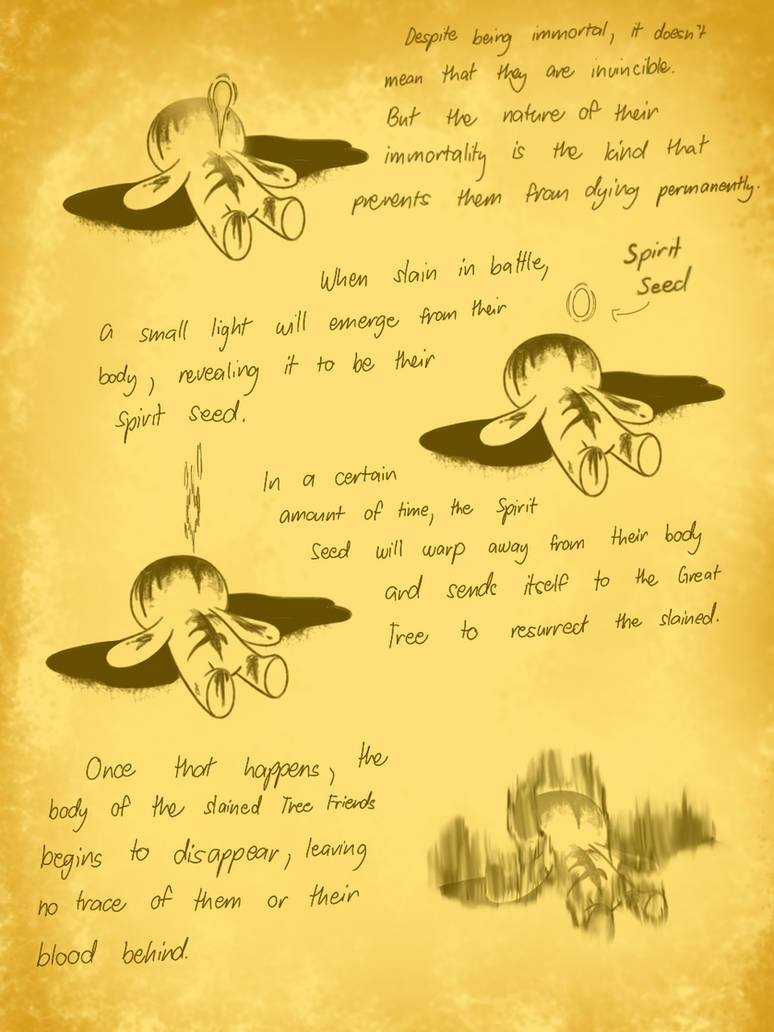 Despite being immortal, it doesn't
mean that they are invincible.
But the nature of their
immortality is the kind that
prevents them from dying permanently.
When slain in battle,
a small light will emerge from their
body, revealing it to be their
spirit seed.
Spirit
Seed
In a certain
amount of time, the Spirit
Seed will warp away from their body
and sends itself to the Great
Tree to resurrect the slained.
Once that happens, the
body of the slained Tree Friends
begins to disappear, leaving
no trace of them or their
blood behind.